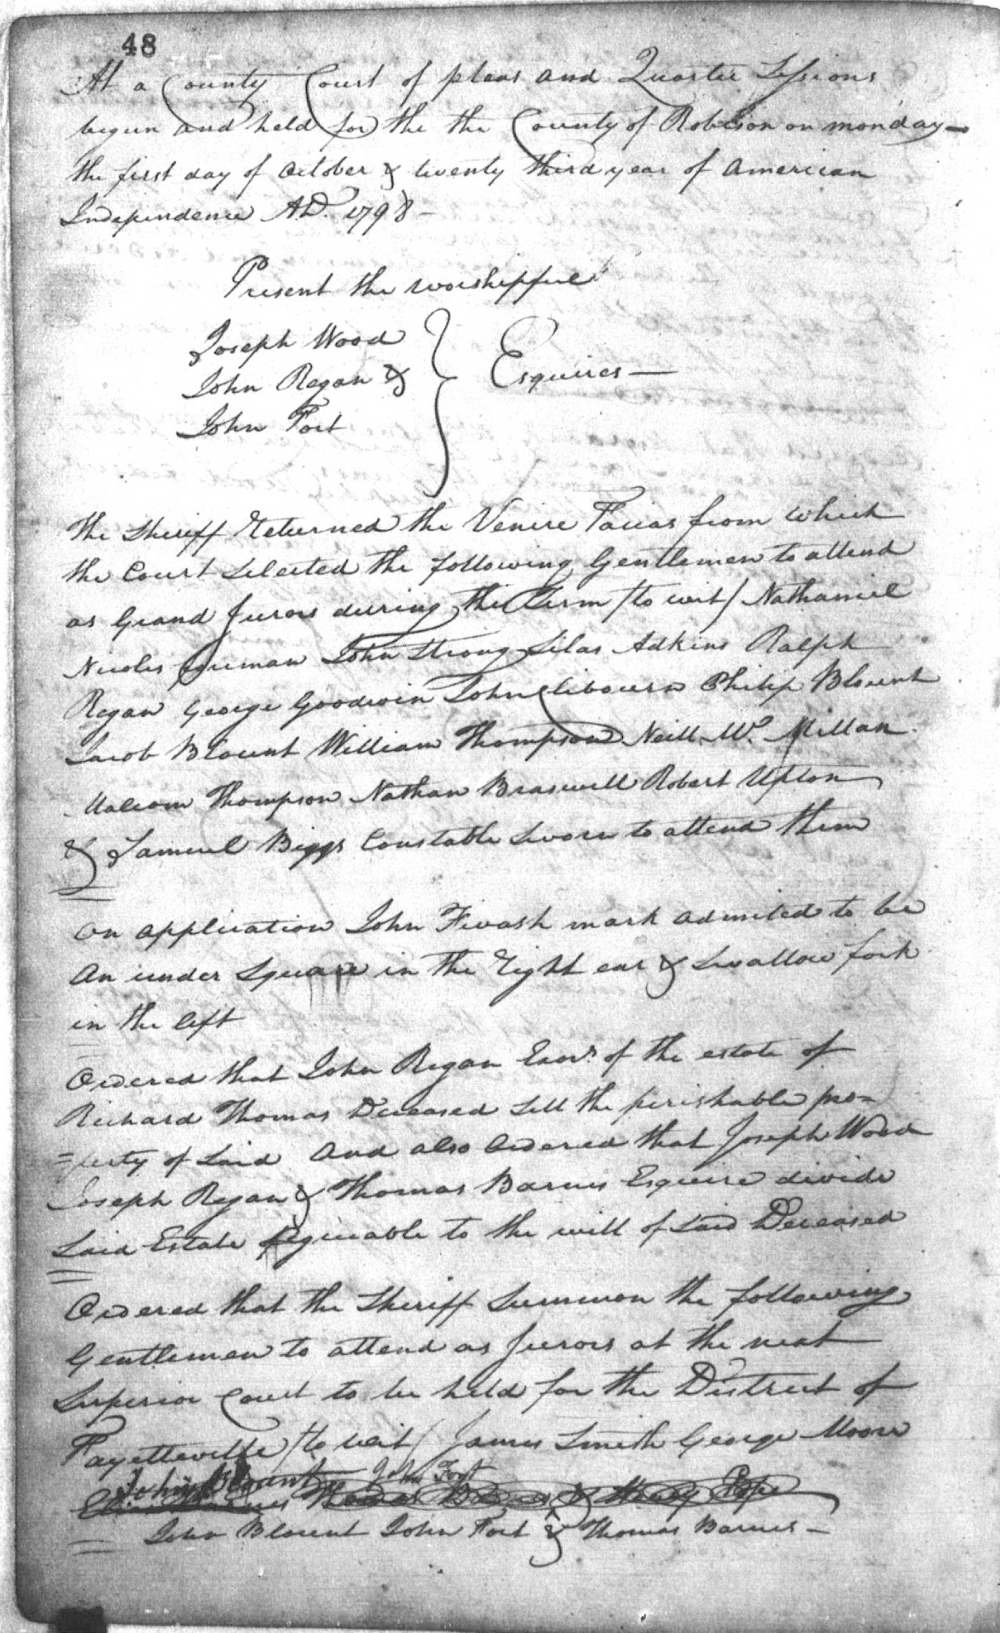 48
At a County Court of pleas and Quarter Sessions
begun and held for the the County of Robeson on monday
the first day of October & twenty third year of American
Independence A.D. 1798 -
Present the worshipfull
Joseph Wood
John Regan &
John Fort
Esquires -
The Sheriff Returned the Venire Facias from which
the Court Selected the following Gentlemen to attend
as Grand Jurors during the Term /to wit/ Nathaniel
Nicoles foreman John Strong Silas Adkins Ralph
Regan George Goodwin John Clibourn Philip Blount
Jacob Blount William Thompson Neill Mc. Millan
Malcom Thompson Nathan Braswell Robert Upton
& Samuel Biggs Constable Sworn to attend them
On application John Fivash mark admited to be
An under Square in the Right ear & Swallow fork
in the left
Ordered that John Regan Exor. of the estate of
Richard Thomas Deceased Sell the perishable pro=
=perty of Said And also Ordered that Joseph Wood
Joseph Regan & Thomas Barnes Esquire divide
Said Estate Agreable to the will of Said Deceased
Ordered that the Sheriff Summon the following
Gentlemen to attend as Jurors at the next
Superior Court to be held for the District of
Fayetteville /to wit/ James Smith George Moore
John Blount John Fort
John Blount John Fort & Thomas Barnes -